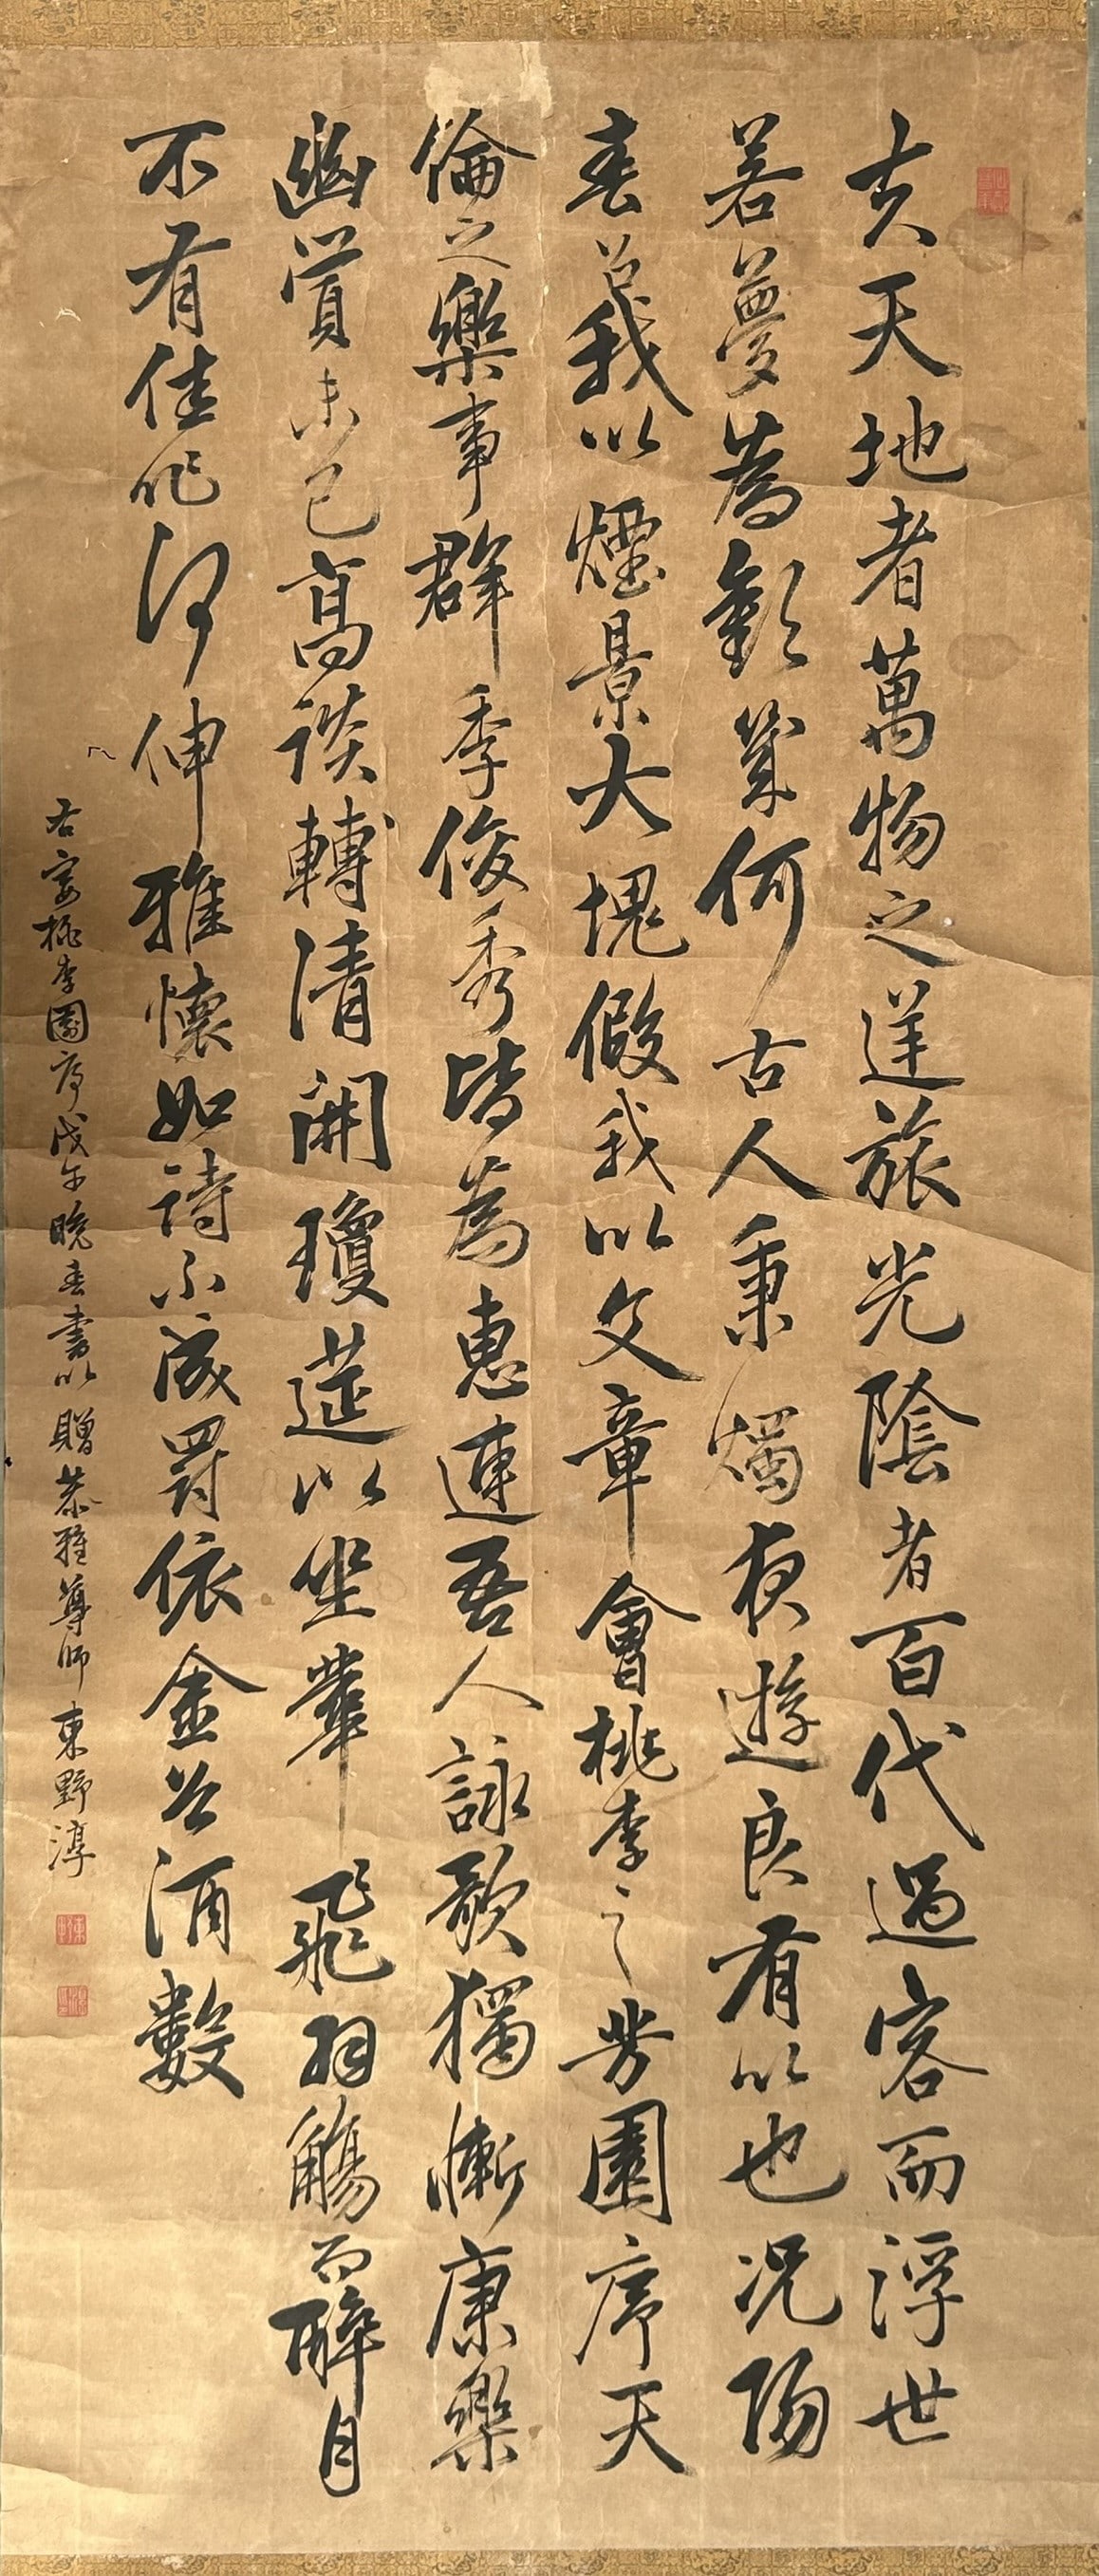 夫天地者萬物之逆旅光陰者百代過客而浮世
若夢為歡幾何古人秉燭夜遊良有以也況陽
春召我以煙景大塊假我以文章會桃李之芳園序天
倫之樂事群季俊秀皆為惠連吾人詠歌獨慚康樂
幽賞未已高談轉清開瓊筵以坐華飛羽觴而醉月
不有佳作何伸雅懷如詩不成罰依金谷酒數
右宴桃李園序戊午晚春書以贈恭雅尊師 東野淳